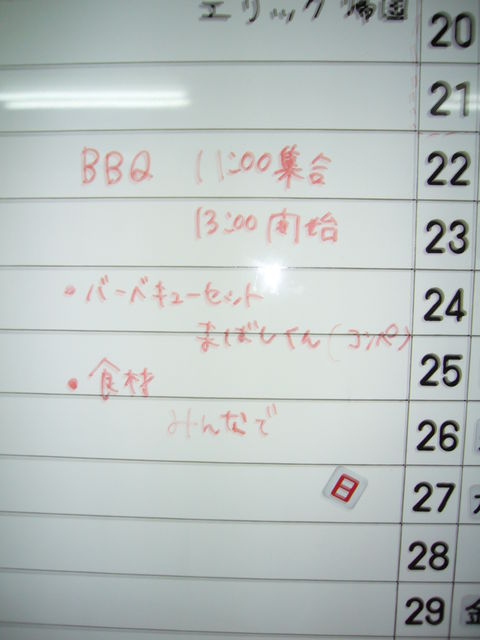 エリック帰国 20
21
BBQ 11:00集合 22
13:00開始 23
・バーベキューセット 24
まばしくん(コンペ)
・食材 25
みんなで 26
日 27
28
金 29